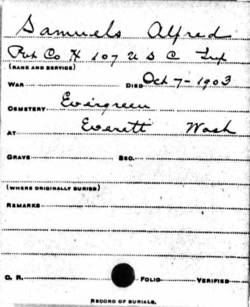 Samuels Alfred
Pvt Co H 107 U S C Inf
(RANK AND SERVICE)
WAR DIED Oct 7-1903
CEMETERY Evergreen
AT Everett Wash
GRAVE SEC.
(WHERE ORIGINALLY BURIED)
REMARKS
O. R. FOLIO VERIFIED
RECORD OF BURIALS.